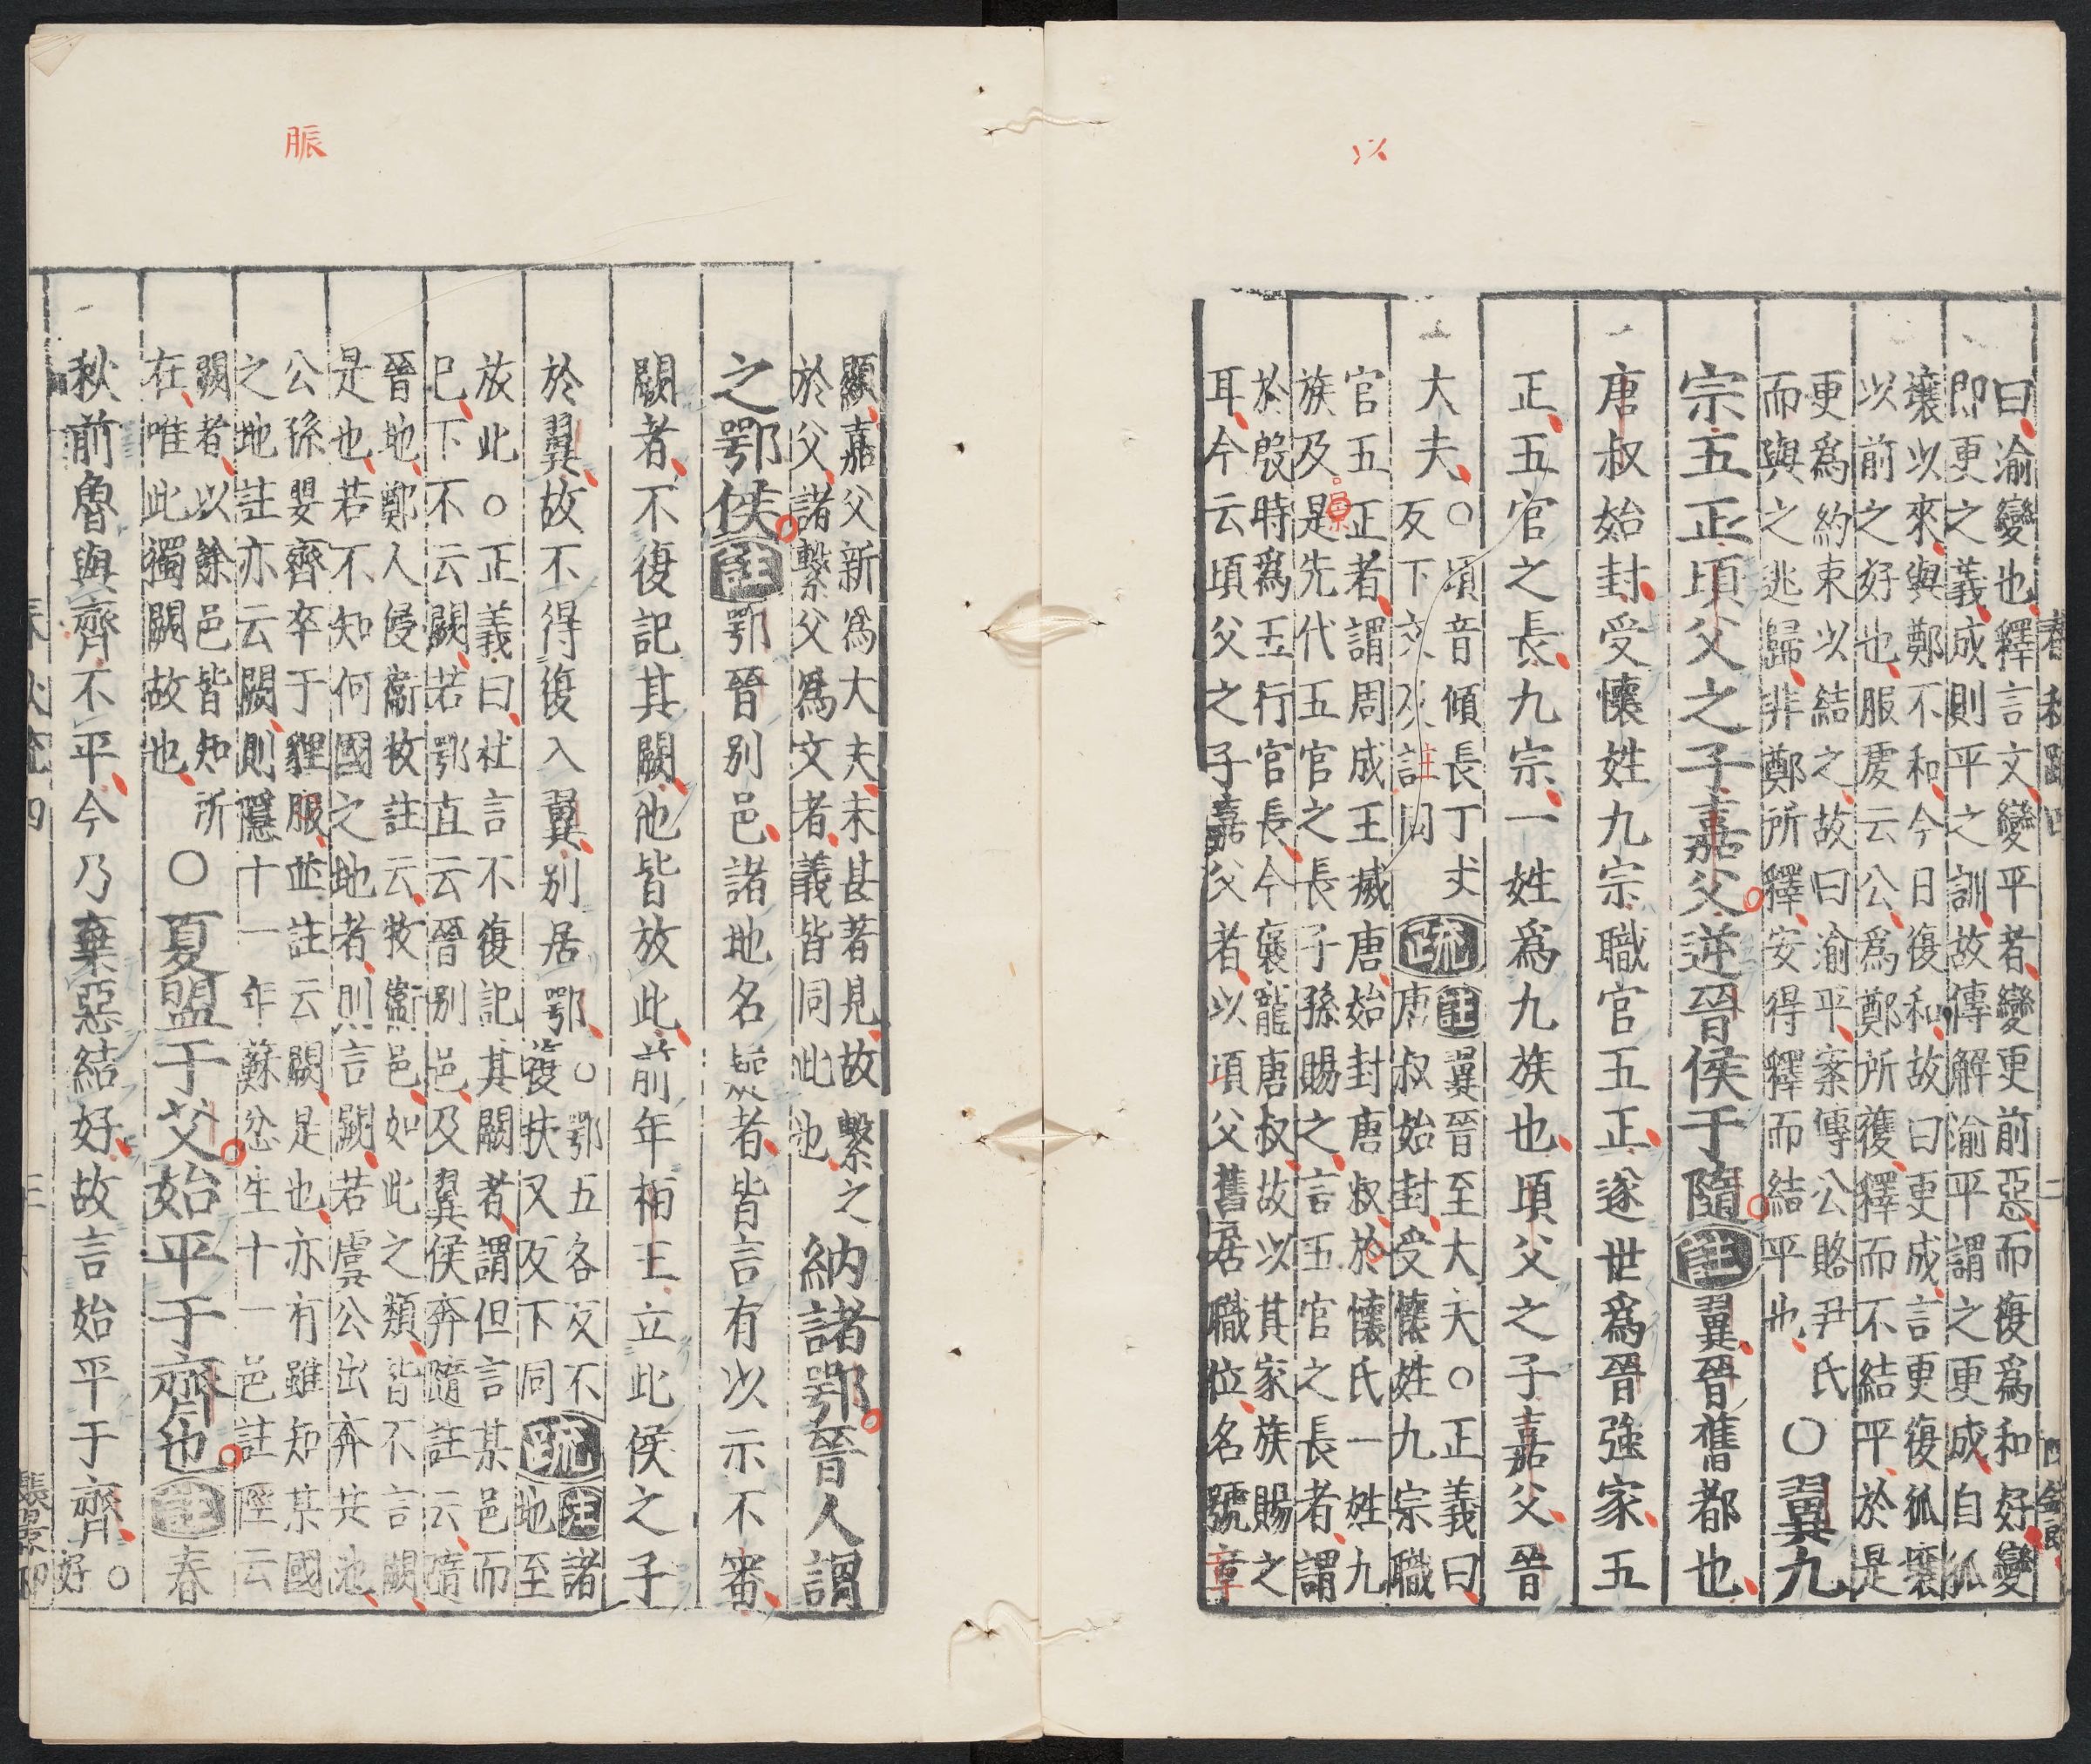 以
曰渝變也釋言文變平者變更前惡而復爲和好變
即更之義成則平之訓故傳解渝平謂之更成自狐
壤以來與鄭不和今日復和故曰更成言更復狐壤
以前之好也服虔云公爲鄭所獲釋而不結平於是
更爲約束以結之故曰渝平案傳公賂尹氏
而與之逃歸非鄭所釋安得釋而結平也
○翼九
宗五正頃父之子嘉父逆晉侯于隨註翼晉舊都也
唐叔始封受懷姓九宗職官五正遂世爲晉強家五
正五官之長九宗一姓爲九族也頃父之子嘉父晉
大夫
○頃音傾長丁丈
反下文及註同
疏註翼晉至大夫○正義曰
唐叔始封受懷姓九宗職
官五正者謂周成王滅唐始封唐叔於懷氏一姓九
族及是先代五官之長子孫賜之言五官之長者謂
於殷時爲五行官長今褒寵唐叔故以其家族賜之
耳今云頃父之子嘉父者以頃父舊居職位名號章
春秋疏四 二
脤
顯嘉父新爲大夫未甚著見故繫之
於父諸繫父爲文者義皆同此也
納諸鄂晉人謂
之鄂侯註鄂晉別邑諸地名疑者皆言有以示不審
闕者不復記其闕他皆放此前年桓王立此侯之子
於翼故不得復入翼別居鄂
○鄂五各反不
復扶又反下同
疏註諸
地至
放此○正義曰杜言不復記其闕者謂但言某邑而
已下不云闕若鄂直云晉別邑及翼侯奔隨註云隨
晉地鄭人侵衞牧註云牧衞邑如此之類皆不言闕
是也若不知何國之地者則言闕若虞公出奔共池
公孫嬰齊卒于貍脤並註云闕是也亦有雖知某國
之地註亦云闕則隱十一年蘇忿生十一邑註陘云
闕者以餘邑皆知所
在唯此獨闕故也
○夏盟于艾始平于齊也註春
秋前魯與齊不平今乃棄惡結好故言始平于齊○
好
春秋疏四 三